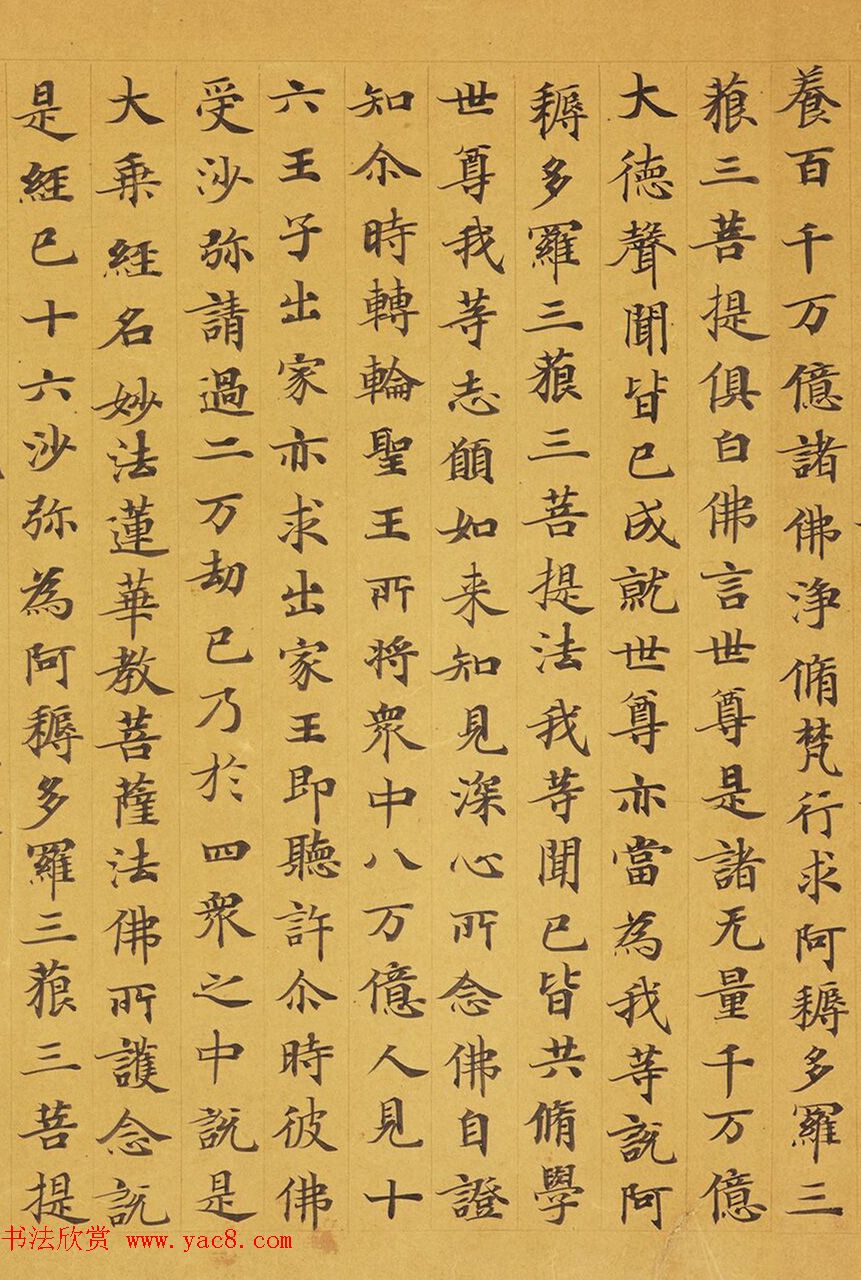 養百千万億諸佛淨脩梵行求阿耨多羅三
藐三菩提俱白佛言世尊是諸无量千万億
大徳聲聞皆已成就世尊亦當為我等說阿
耨多羅三藐三菩提法我等聞已皆共脩學
世尊我等志願如来知見深心所念佛自證
知尒時轉輪聖王所將衆中八万億人見十
六王子出家亦求出家王即聽許尒時彼佛
受沙弥請過二万劫已乃於四衆之中說是
大乗經名妙法蓮華教菩薩法佛所護念說
是經已十六沙弥為阿耨多羅三藐三菩提
书法欣赏 www.yac8.com